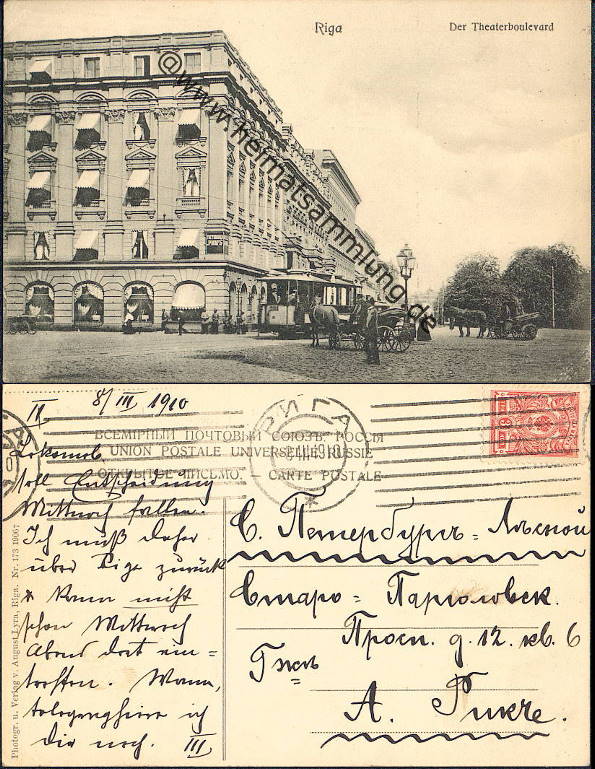 Riga
Der Theaterboulevard
@www.heimatsammlung.de
II. 8/III 1910
РИГА
ВСЕМІРНЫЙ ПОЧТОВЫЙ СОЮЗЪ. РОССІЯ
UNION POSTALE UNIVERSELLE. RUSSIE
ОТКРЫТОЕ ПИСЬМО. CARTE POSTALE
soll Entscheidung
Mittwoch fallen.
Ich muß daher
über Riga zurück
& kann nicht
schon Mittwoch
Abend dort ein-
treffen. Wann,
telegraphiere ich
Dir noch. III
С. Петербургъ = Лѣсной
Старо = Парголовск.
Просп. д. 12. кв. 6
А. Рикче.
Photogr. u. Verlag v. August Lyra, Riga. Nr. 173 1906/7